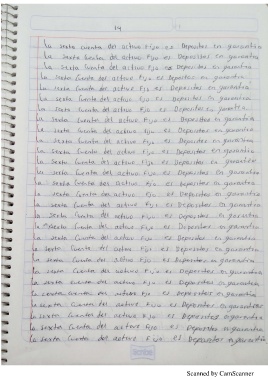 14
La sexta cuenta del activo fijo es Depositos en garantia
La sexta cuenta del activo fijo es Depositos en garantia
La sexta cuenta del activo fijo es Depositos en garantia
La sexta cuenta del activo fijo es Depositos en garantia
La sexta cuenta del activo fijo es Depositos en garantia
La sexta cuenta del activo fijo es Depositos en garantia
La sexta cuenta del activo fijo es Depositos en garantia
La sexta cuenta del activo fijo es Depositos en garantia
La sexta cuenta del activo fijo es Depositos en garantia
La sexta cuenta del activo fijo es Depositos en garantia
La sexta cuenta del activo fijo es Depositos en garantia
La sexta cuenta del activo fijo es Depositos en garantia
La sexta cuenta del activo fijo es Depositos en garantia
La sexta cuenta del activo fijo es Depositos en garantia
La sexta cuenta del activo fijo es Depositos en garantia
La sexta cuenta del activo fijo es Depositos en garantia
La sexta cuenta del activo fijo es Depositos en garantia
La sexta cuenta del activo fijo es Depositos en garantia
La sexta cuenta del activo fijo es Depositos en garantia
La sexta cuenta del activo fijo es Depositos en garantia
La sexta cuenta del activo fijo es Depositos en garantia
La sexta cuenta del activo fijo es Depositos en garantia
La sexta cuenta del activo fijo es Depositos en garantia
La sexta cuenta del activo fijo es Depositos en garantia
La sexta cuenta del activo fijo es Depositos en garantia
La sexta cuenta del activo fijo es Depositos en garantia
La sexta cuenta del activo fijo es Depositos en garantia
La sexta cuenta del activo fijo es Depositos en garantia
La sexta cuenta del activo fijo es Depositos en garantia
Scanned by CamScanner